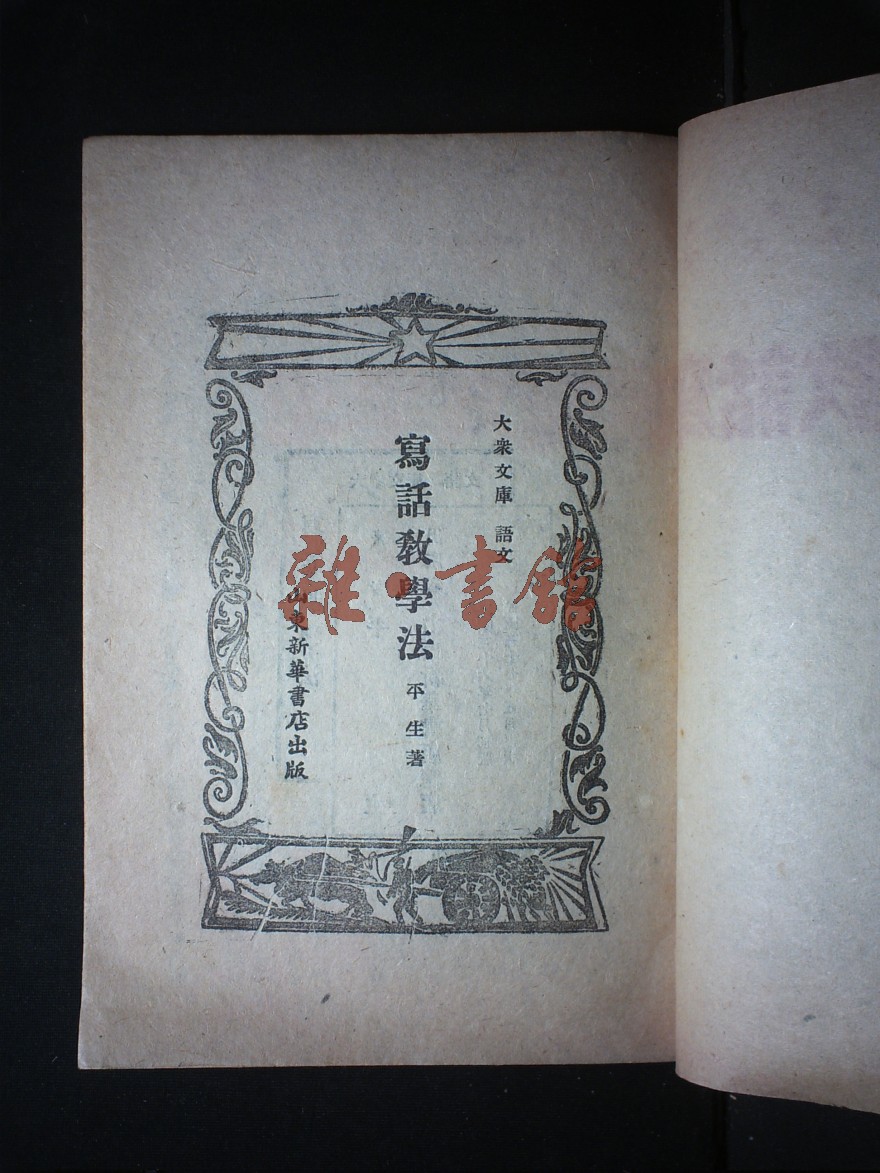 大衆文庫 語文
寫話教學法 平生著
山東新華書店出版
雜·書館